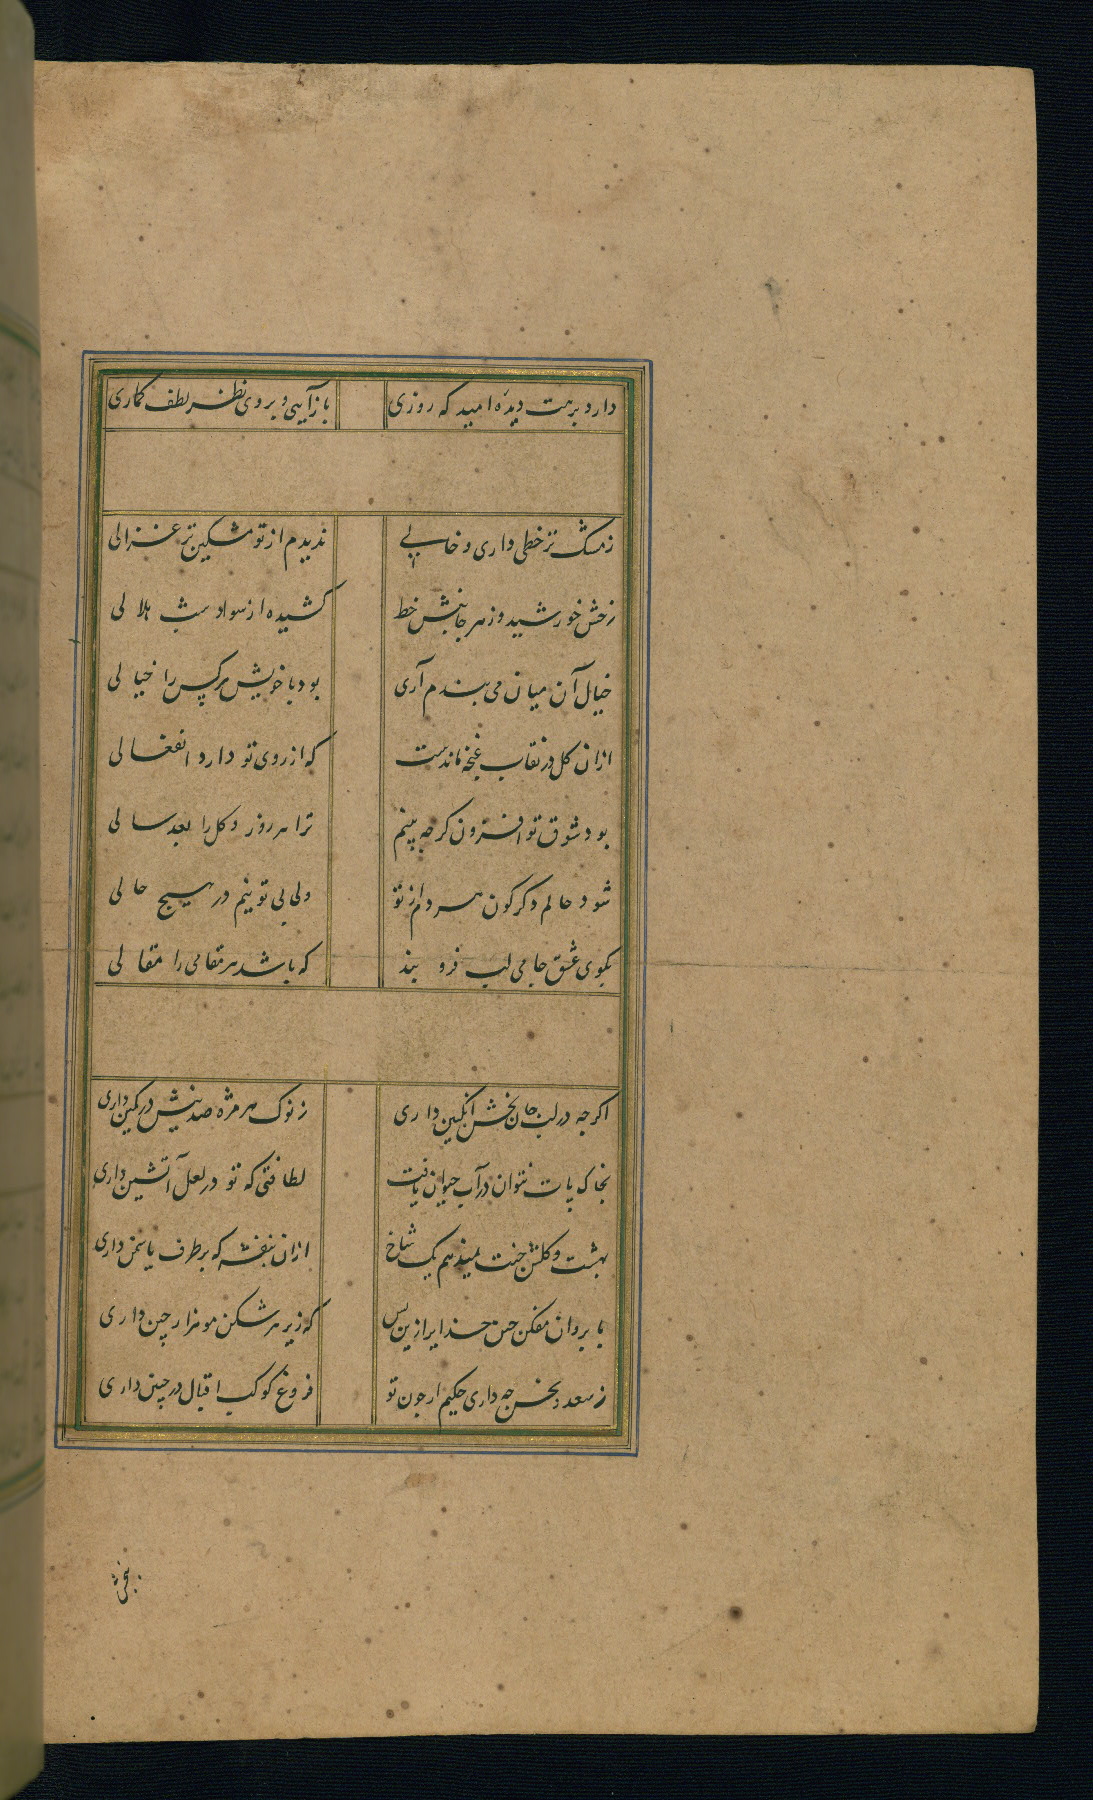 دارد برهت دیدهٔ امید که روزی بازآیی و بروی نظر لطف کماری
ز مشک تر خطی داری و خالی ندیدم از تو مشکین تر غزالی
رخش خورشید وز هر جانبش خط کشیده از سواد شب هلالی
خیال آن میان می بندم آری بود با خویش هر کس را خیالی
ازان کل در نقاب غنچه ماندست که از روی تو دارد انفعالی
بود شوق تو افزون کرجه بینم ترا هر روز و کل را بعد سالی
شود حالم دکرکون هر دم از تو ولی بی تو نیم در هیچ حالی
بکوی عشق جامی لب فرو بند که باشد هر مقامی را مقالی
اکرجه در لب جان بخش انکبین داری ز نوک هر مژه صد نیش در کمین داری
بخاک پات نتوان در آب حیوان یافت لطافتی که تو در لعل آتشین داری
بهشت و کلشن جنت نمیدهم یک شاخ ازان بنفشه که بر طرف یاسمن داری
بابروان مفکن چین خدایرا زین پس که زیر هر شکن مو هزار چین داری
ز سعد و نحس چه داری حکیم ار چون تو فروغ کوکب اقبال در جبین داری